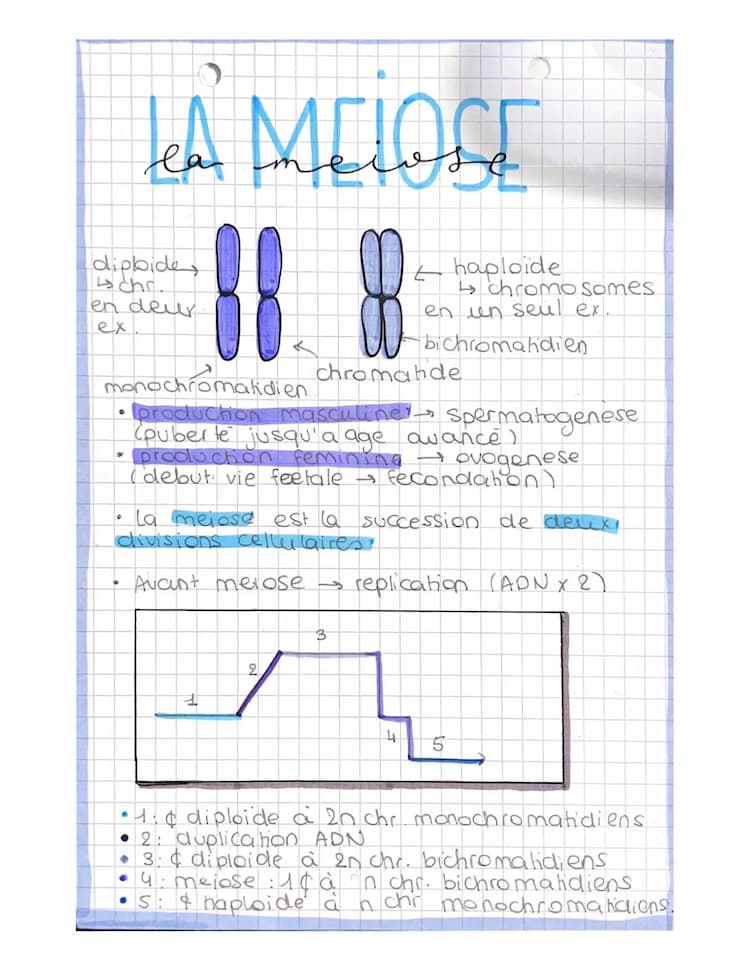 LA MEIOSE
la meiose
diploide
↳ chr.
en deux
ex.
monochromatidien
chromatide
haploïde
↳ chromosomes
en un seul ex.
bichromatidien
• production masculine → spermatogenèse
(puberté jusqu'a age avancé)
• production feminine → ovogenese
(debut vie feetale → fecondation)
• La meiose est la succession de deux
divisions cellulaires
• Avant meiose → replication (ADN x 2)
1
2
3
4
5
• 1: ¢ diploïde à 2n chr. monochromatidiens
• 2: duplication ADN
• 3: ¢ diploïde à 2n chr. bichromatidiens
• 4: meiose : 1 ¢ à n chr. bichromatidiens
• 5: ¢ haploide à n chr monochromatidiens.